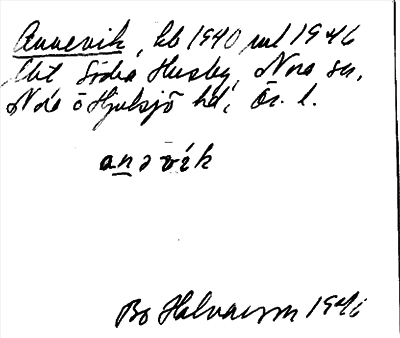 Annevik, kb 1940 jul 1946
Lht Södra Husby, Nora sn,
Nora o Hjulsjö hd, Ör. l.
anəvik
Bo Halvarson 1946